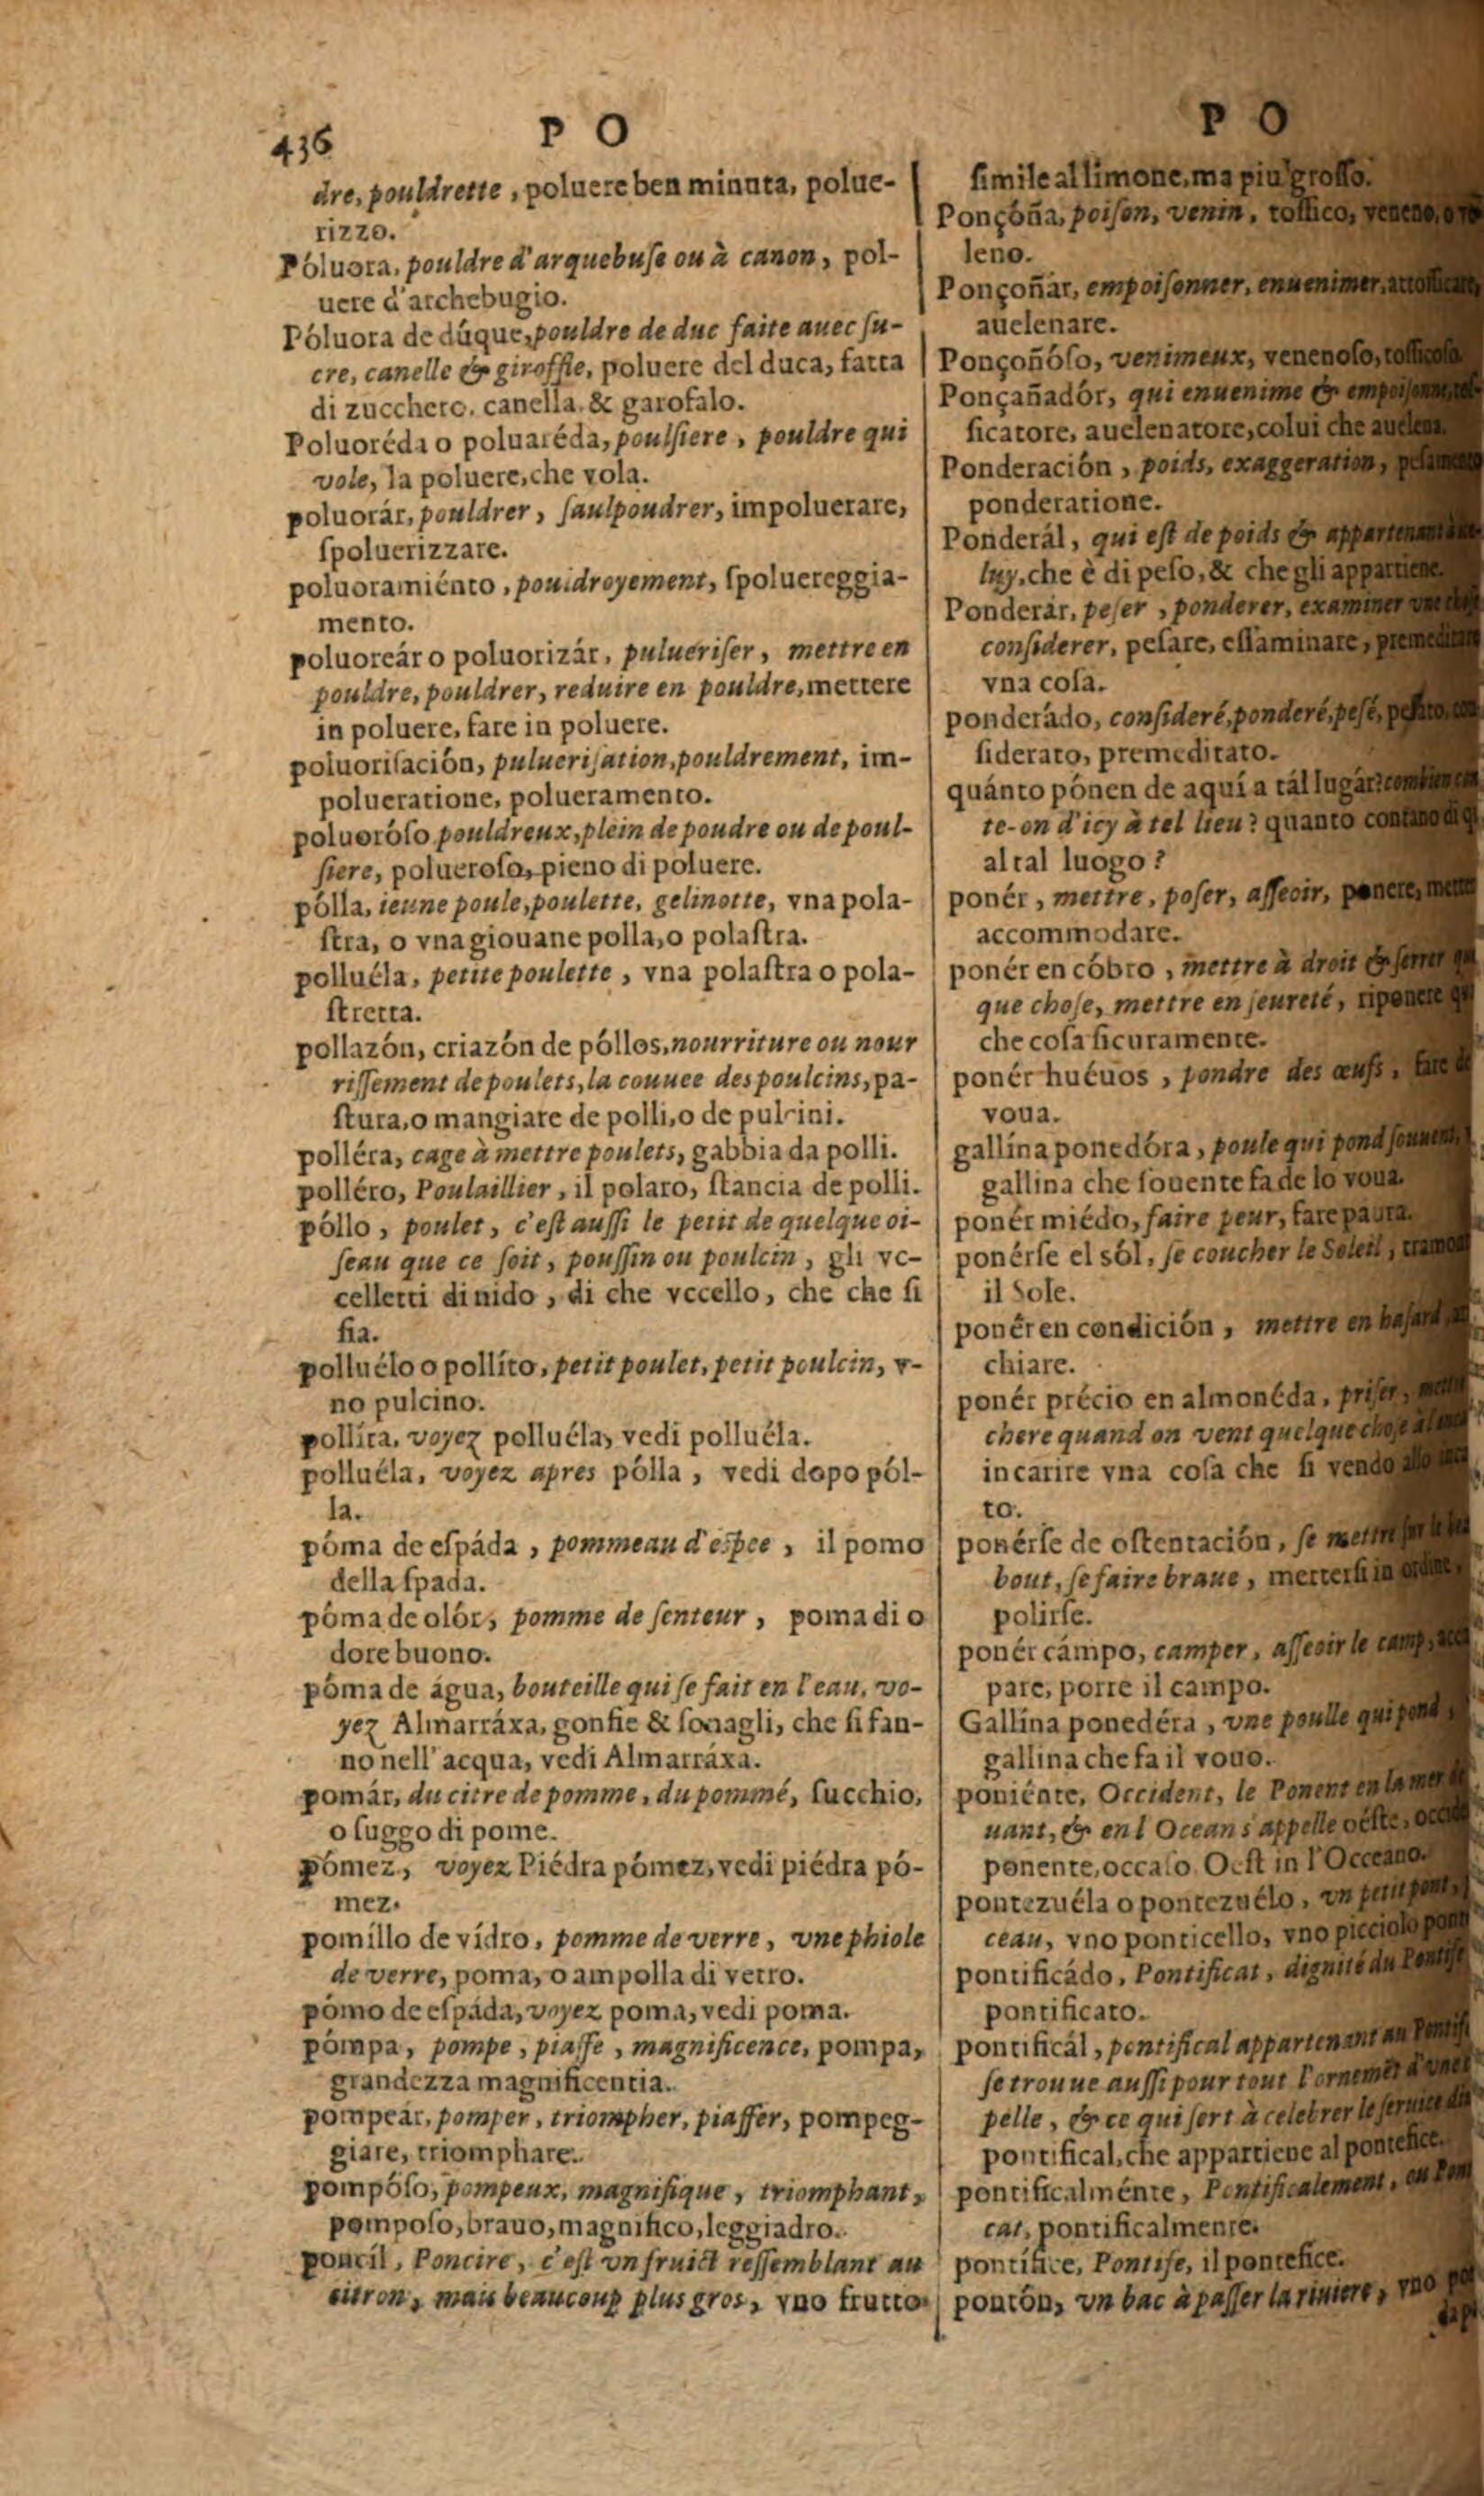 436
P O
dre, pouldrette, poluere ben minuta, polue-
rizzo.
Póluora, pouldre d'arquebuſe ou à canon, pol-
uere d'archebugio.
Póluora de dúque, pouldre de duc faite auec ſu-
cre, canelle & giroffle, poluere del duca, fatta
di zucchero, canella, & garofalo.
Poluoréda o poluaréda, poulſiere, pouldre qui
vole, la poluere, che vola.
poluorár, pouldrer, ſaulpoudrer, impoluerare,
ſpoluerizzare.
poluoramiénto, pouldroyement, ſpoluereggia-
mento.
poluoreár o poluorizár, pulueriſer, mettre en
pouldre, pouldrer, reduire en pouldre, mettere
in poluere, fare in poluere.
poluoriſación, pulueriſation, pouldrement, im-
polueratione, polueramento.
poluoróſo pouldreux, plein de poudre ou de poul-
ſiere, polueroſo, pieno di poluere.
pólla, ieune poule, poulette, gelinotte, vna pola-
ſtra, o vna giouane polla, o polaſtra.
polluéla, petite poulette, vna polaſtra o pola-
ſtretta.
pollazón, criazón de póllos, nourriture ou nour
riſſement de poulets, la couuee des poulcins, pa-
ſtura, o mangiare de polli, o de pulcini.
polléra, cage à mettre poulets, gabbia da polli.
polléro, Poulaillier, il polaro, ſtancia de polli.
póllo, poulet, c'eſt auſſi le petit de quelque oi-
ſeau que ce ſoit, pouſſin ou poulcin, gli vc-
celletti di nido, di che vccello, che che ſi
ſia.
polluélo o pollíto, petit poulet, petit poulcin, v-
no pulcino.
pollíta, voyez polluéla, vedi polluéla.
polluéla, voyez apres pólla, vedi dopo pól-
la.
póma de eſpáda, pommeau d'eſpee, il pomo
della ſpada.
póma de olór, pomme de ſenteur, poma di o
dore buono.
póma de água, bouteille qui ſe fait en l'eau, vo-
yez Almarráxa, gonfie & ſonagli, che ſi fan-
no nell' acqua, vedi Almarráxa.
pomár, du citre de pomme, du pommé, ſucchio,
o ſuggo di pome.
pómez, voyez Piédra pómez, vedi piédra pó-
mez.
pomíllo de vídro, pomme de verre, vne phiole
de verre, poma, o ampolla di vetro.
pómo de eſpáda, voyez poma, vedi poma.
pómpa, pompe, piaffe, magnificence, pompa,
grandezza magnificentia.
pompeár, pomper, triompher, piaffer, pompeg-
giare, triomphare.
pompóſo, pompeux, magnifique, triomphant,
pompoſo, brauo, magnifico, leggiadro.
poncíl, Poncire, c'eſt vn fruict reſſemblant au
citron, mais beaucoup plus gros, vno frutto
P O
ſimile al limone, ma piu groſſo.
Ponçóña, poiſon, venin, toſſico, veneno, o ve
leno.
Ponçoñár, empoiſonner, enuenimer, attoſſicare,
auelenare.
Ponçoñóſo, venimeux, venenoſo, toſſicoſo.
Ponçañadór, qui enuenime & empoiſonne, toſ-
ſicatore, auelenatore, colui che auelena.
Ponderación, poids, exaggeration, peſamento
ponderatione.
Ponderál, qui eſt de poids & appartenant
luy, che è di peſo, & che gli appartiene.
Ponderár, peſer, ponderer, examiner vne choſe
conſiderer, peſare, eſſaminare, premeditare
vna coſa.
ponderádo, conſideré, ponderé, peſé, peſato, con
ſiderato, premeditato.
quánto pónen de aquí a tál lugár? combien con
te-on d'icy à tel lieu? quanto contano di qi
al tal luogo?
ponér, mettre, poſer, aſſeoir, ponere, mette
accommodare.
ponér en cóbro, mettre à droit & ſerrer qu
que choſe, mettre en ſeureté, riponere qu
che coſa ſicuramente.
ponér huéuos, pondre des œufs, fare de
voua.
gallína ponedóra, poule qui pond ſouuent,
gallina che ſouente fa de lo voua.
ponér miédo, faire peur, fare paura.
ponérſe el ſól, ſe coucher le Soleil, tramon
il Sole.
ponér en condición, mettre en haſard,
chiare.
ponér précio en almonéda, priſer, mettre
chere quand on vent quelque choſe
incarire vna coſa che ſi vendo allo
to.
ponérſe de oſtentación, ſe mettre ſur le
bout, ſe faire braue, metterſi in ordine,
polirſe.
ponér cámpo, camper, aſſeoir le camp, acc
pare, porre il campo.
Gallína ponedéra, vne poulle qui pond,
gallina che fa il vouo.
poniénte, Occident, le Ponent en la mer
uant, & en l Ocean s'appelle oéſte,
ponente, occaſo Oeſt in l'Occeano.
pontezuéla o pontezuélo, vn petit pont,
ceau, vno ponticello, vno picciolo pont
pontificádo, Pontificat, dignité du Pontife
pontificato.
pontificál, pontifical appartenant au Pontif
ſe trouue auſſi pour tout l'ornemẽt d'vne
pelle, & ce qui ſert à celebrer le ſeruice
pontifical, che appartiene al pontefice.
pontificalménte, Pontificalement, ou Pont
cat, pontificalmente.
pontífice, Pontife, il pontefice.
pontón, vn bac à paſſer la riuiere, vno